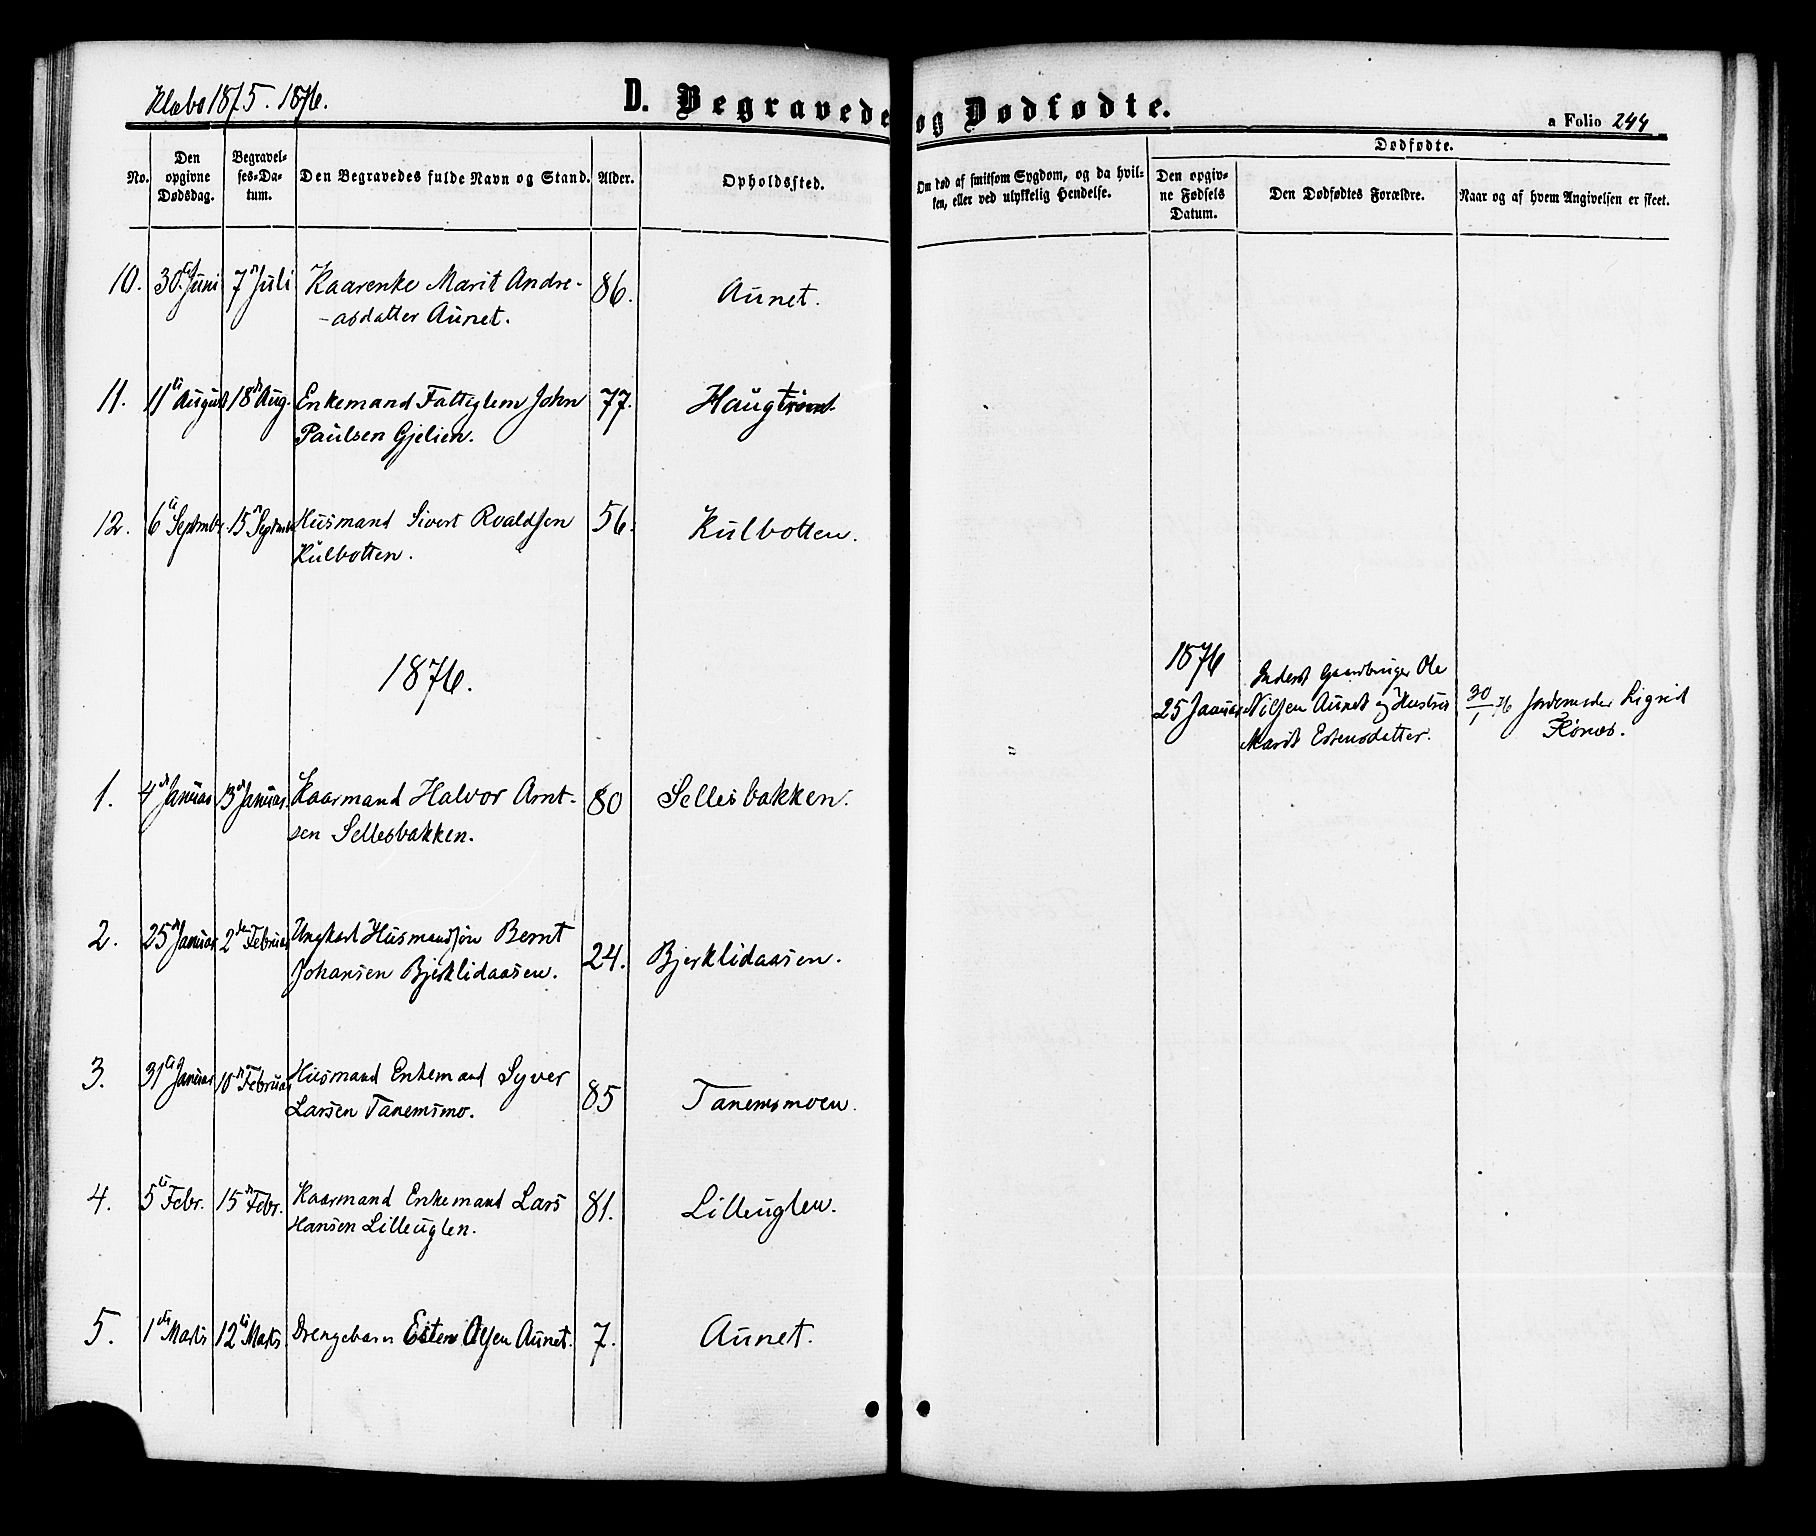 Klæbo 1875. 1876.
D. Begravede og Dødfødte.
a Folio 244
No.
Den opgivne Dødsdag.
Begravel-
ses-Da-
tum.
Den Begravedes fulde Navn og Stand.
Alder.
Opholdssted.
Om død af smitsom Sygdom, og da hvil-
ken, eller ved ulykkelig Hendelse.
Dødfødte.
Den opgiv-
ne Fødsels
Datum.
Den Dødfødtes Forældre.
Naar og af hvem Angivelsen er skeet.
10. 30te Juni 7de Juli Kaarenke Marit Andre- 86. Aunet.
-asdatter Aunet.
11. 11te August 18de Aug. Enkemand Fattiglem John 77. Haugtrøen
Paulsen Gjelien.
12. 6te Septmbr. 15de Septmbr Husmand Sivert Roaldsen 56. Kulbotten.
Kulbotten.
1876.
1876
25 Januar
Inderst Gaardbruger Ole
Nilsen Aunet og Hustru
Marit Estensdatter.
30/1 76 Jordemoder Sigrid
1. 4de Januar 13de Januar. Kaarmand Halvor Arnt- 80 Sellesbakken.
sen Sellesbakken.
2. 25de Januar 2den Februar Ungkarl Husmandssøn Bernt 24. Bjerklidaasen.
Johansen Bjerklidaasen.
3. 31te Januar 10de Februar Husmand Enkemand Syver 85 Tanemsmoen.
Larsen Tanemsmo.
4. 5te Febr. 15de Febr. Kaarmand Enkemand Lars 81. Lilleuglen.
Hansen Lilleuglen.
5. 1ste Marts 12te Marts Drengebarn Esten Olsen Aunet. 7. Aunet.